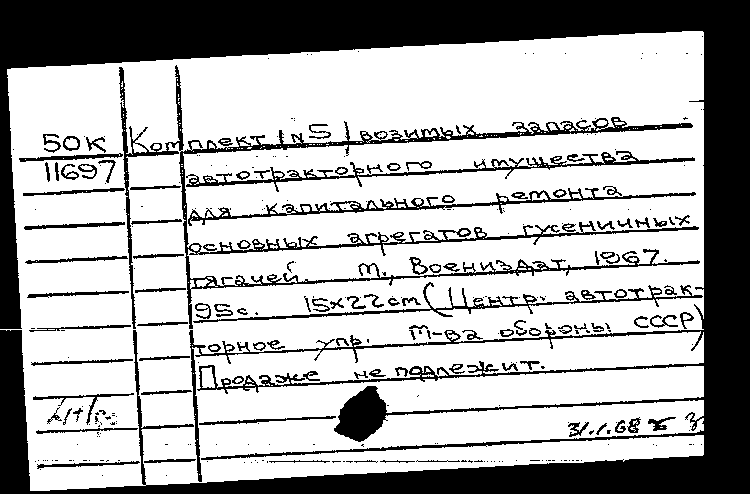 50К Комплект (N5) возимых запасов
11697 автотракторного имущества
для капитального ремонта
основных агрегатов гусеничных
тягачей. М., Воениздат, 1967.
95с. 15x22cm (Центр. автотрак-
торное упр. М-ва обороны СССР)
Продаже не подлежит.
31.1.68